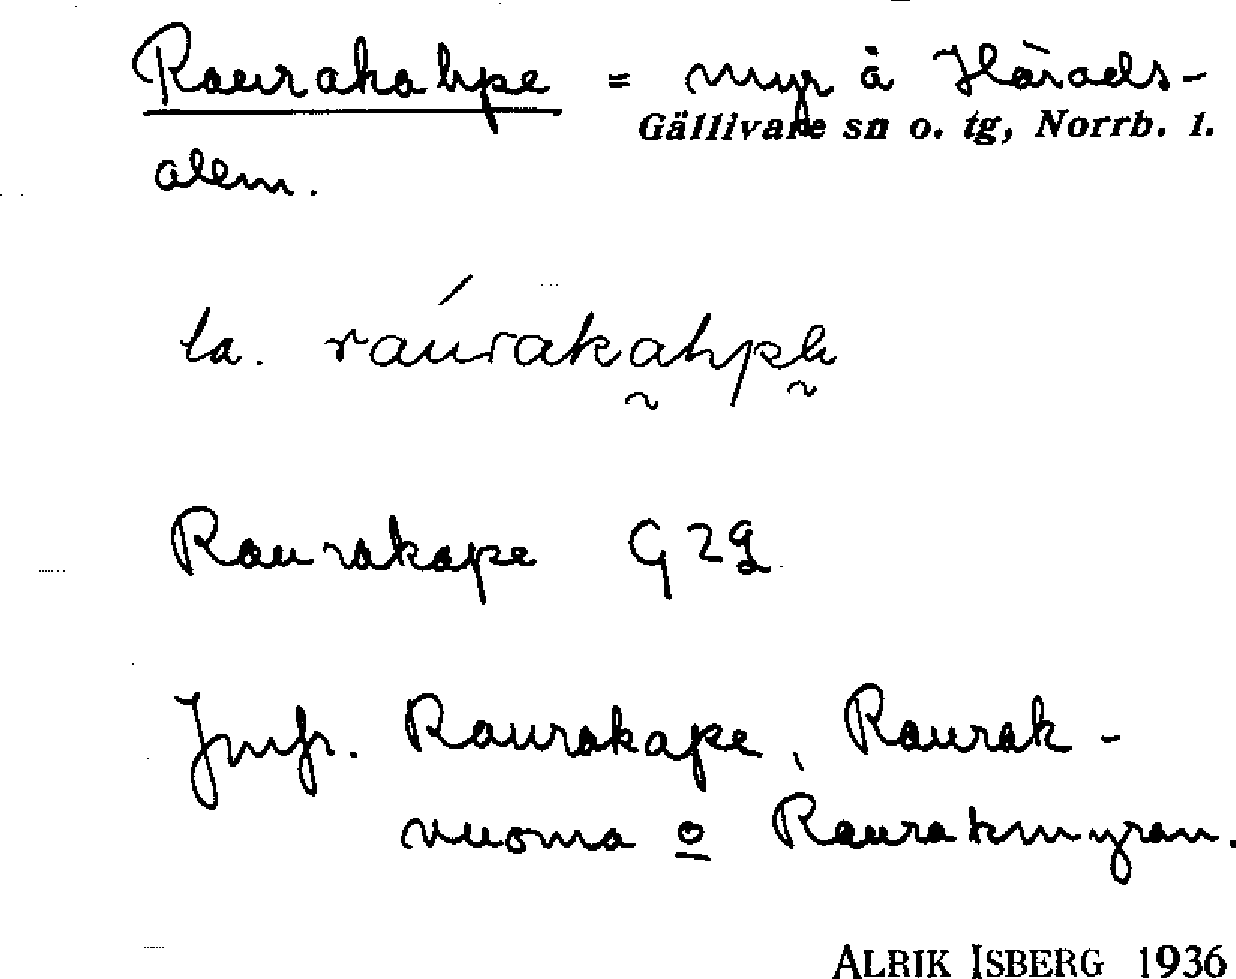 Raurakahpe = myr å Härads-
Gällivare sn o. tg, Norrb. l.
allm.
la. raúrakahpe
Raurakape G 2g
Jmfr. Raurakape, Raurak-
vuoma o Raurakmyran.
ALRIK ISBERG 1936